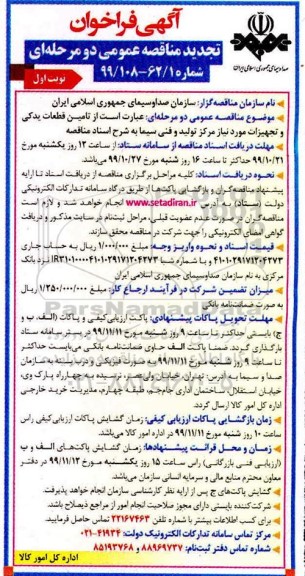 آگهی فراخوان
تجدید مناقصه عمومی دو مرحله‌ای
شماره ۹۹/۱۰۸-۶۲/۱
نوبت اول
صدا و سیمای جمهوری اسلامی ایران
نام سازمان مناقصه‌گزار: سازمان صداوسیمای جمهوری اسلامی ایران
موضوع مناقصه عمومی دو مرحله‌ای: عبارت است از تامین قطعات یدکی
و تجهیزات مورد نیاز مرکز تولید و فنی سیما به شرح اسناد مناقصه
مهلت دریافت اسناد مناقصه از سامانه ستاد: از ساعت ۱۲ روز یکشنبه مورخ
۹۹/۱۰/۲۱ حداکثر تا ساعت ۱۶ روز شنبه مورخ ۹۹/۱۰/۲۷ می‌باشد.
نحوه دریافت اسناد: کلیه مراحل برگزاری مناقصه از دریافت اسناد تا ارایه
پیشنهاد مناقصه‌گران و بازگشایی پاکت‌ها از طریق درگاه سامانه تدارکات الکترونیکی
دولت (ستاد) به آدرس www.setadiran.ir انجام خواهد شد و لازم است
مناقصه‌گران در صورت عدم عضویت قبلی، مراحل ثبت‌نام در سایت مذکور و دریافت
گواهی امضای الکترونیکی را جهت شرکت در مناقصه محقق سازند.
قیمت اسناد و نحوه واریز وجه: مبلغ ۱/۰۰۰/۰۰۰ ریال به حساب جاری
مرکزی به نام سازمان صداوسیمای جمهوری اسلامی ایران
میزان تضمین شرکت در فرآیند ارجاع کار: مبلغ ۱/۲۵۰/۰۰۰/۰۰۰ ریال
به صورت ضمانت‌نامه بانکی
مهلت تحویل پاکات پیشنهادی: پاکت ارزیابی کیفی و پاکات (الف، ب و
ج) بایستی حداکثر تا ساعت ۹ روز شنبه مورخ ۹۹/۱۱/۱۱ در بستر سامانه ستاد
بارگذاری گردد. ضمنا پاکت الف حاوی ضمانت‌نامه بانکی می‌بایست حداکثر
تا ساعت ۹ روز شنبه مورخ ۹۹/۱۱/۱۱ به صورت فیزیکی و دربسته به سازمان
صدا و سیما به آدرس: تهران، خیابان ولی‌عصر، نرسیده به چهارراه پارک‌وی،
خیابان استقلال، ساختمان اداری جام‌جم، طبقه چهارم، مدیریت خرید خارجی
اداره کل امور کالا ارسال گردد.
زمان بازگشایی پاکات ارزیابی کیفی: زمان گشایش پاکات ارزیابی کیفی راس
ساعت ۱۰ روز شنبه مورخ ۹۹/۱۱/۱۱ در اداره امور کالا می‌باشد.
زمان و محل قرائت پیشنهادها: زمان گشایش پاکت‌های الف و ب
(ارزیابی فنی بازرگانی) راس ساعت ۱۵ روز یکشنبه مورخ ۹۹/۱۱/۱۲ در دفتر
معاون محترم منابع مالی و سرمایه انسانی سازمان می‌باشد.
گشایش پاکت‌های ج پس از ارایه نظر کارشناسی سازمان انجام خواهد پذیرفت.
شرکت‌کننده بایستی دارای مجوز صلاحیت انجام امور از مراجع ذیصلاح باشد.
برای کسب اطلاعات بیشتر با شماره تلفن ۲۲۱۶۷۴۶۳ تماس حاصل فرمایید.
مرکز تماس سامانه تدارکات الکترونیکی دولت: ۴۱۹۳۴-۰۲۱
شماره تماس دفتر ثبت‌نام: ۸۸۹۶۹۷۳۷ و ۸۵۱۹۳۷۶۸
اداره کل امور کالا